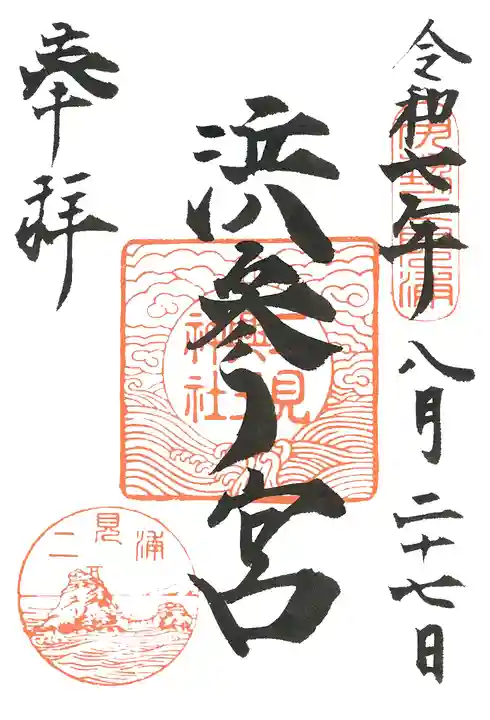 令和七年八月二十七日
伊勢二見浦
浜参ノ宮
二見
興玉
神社
奉拝
二見浦